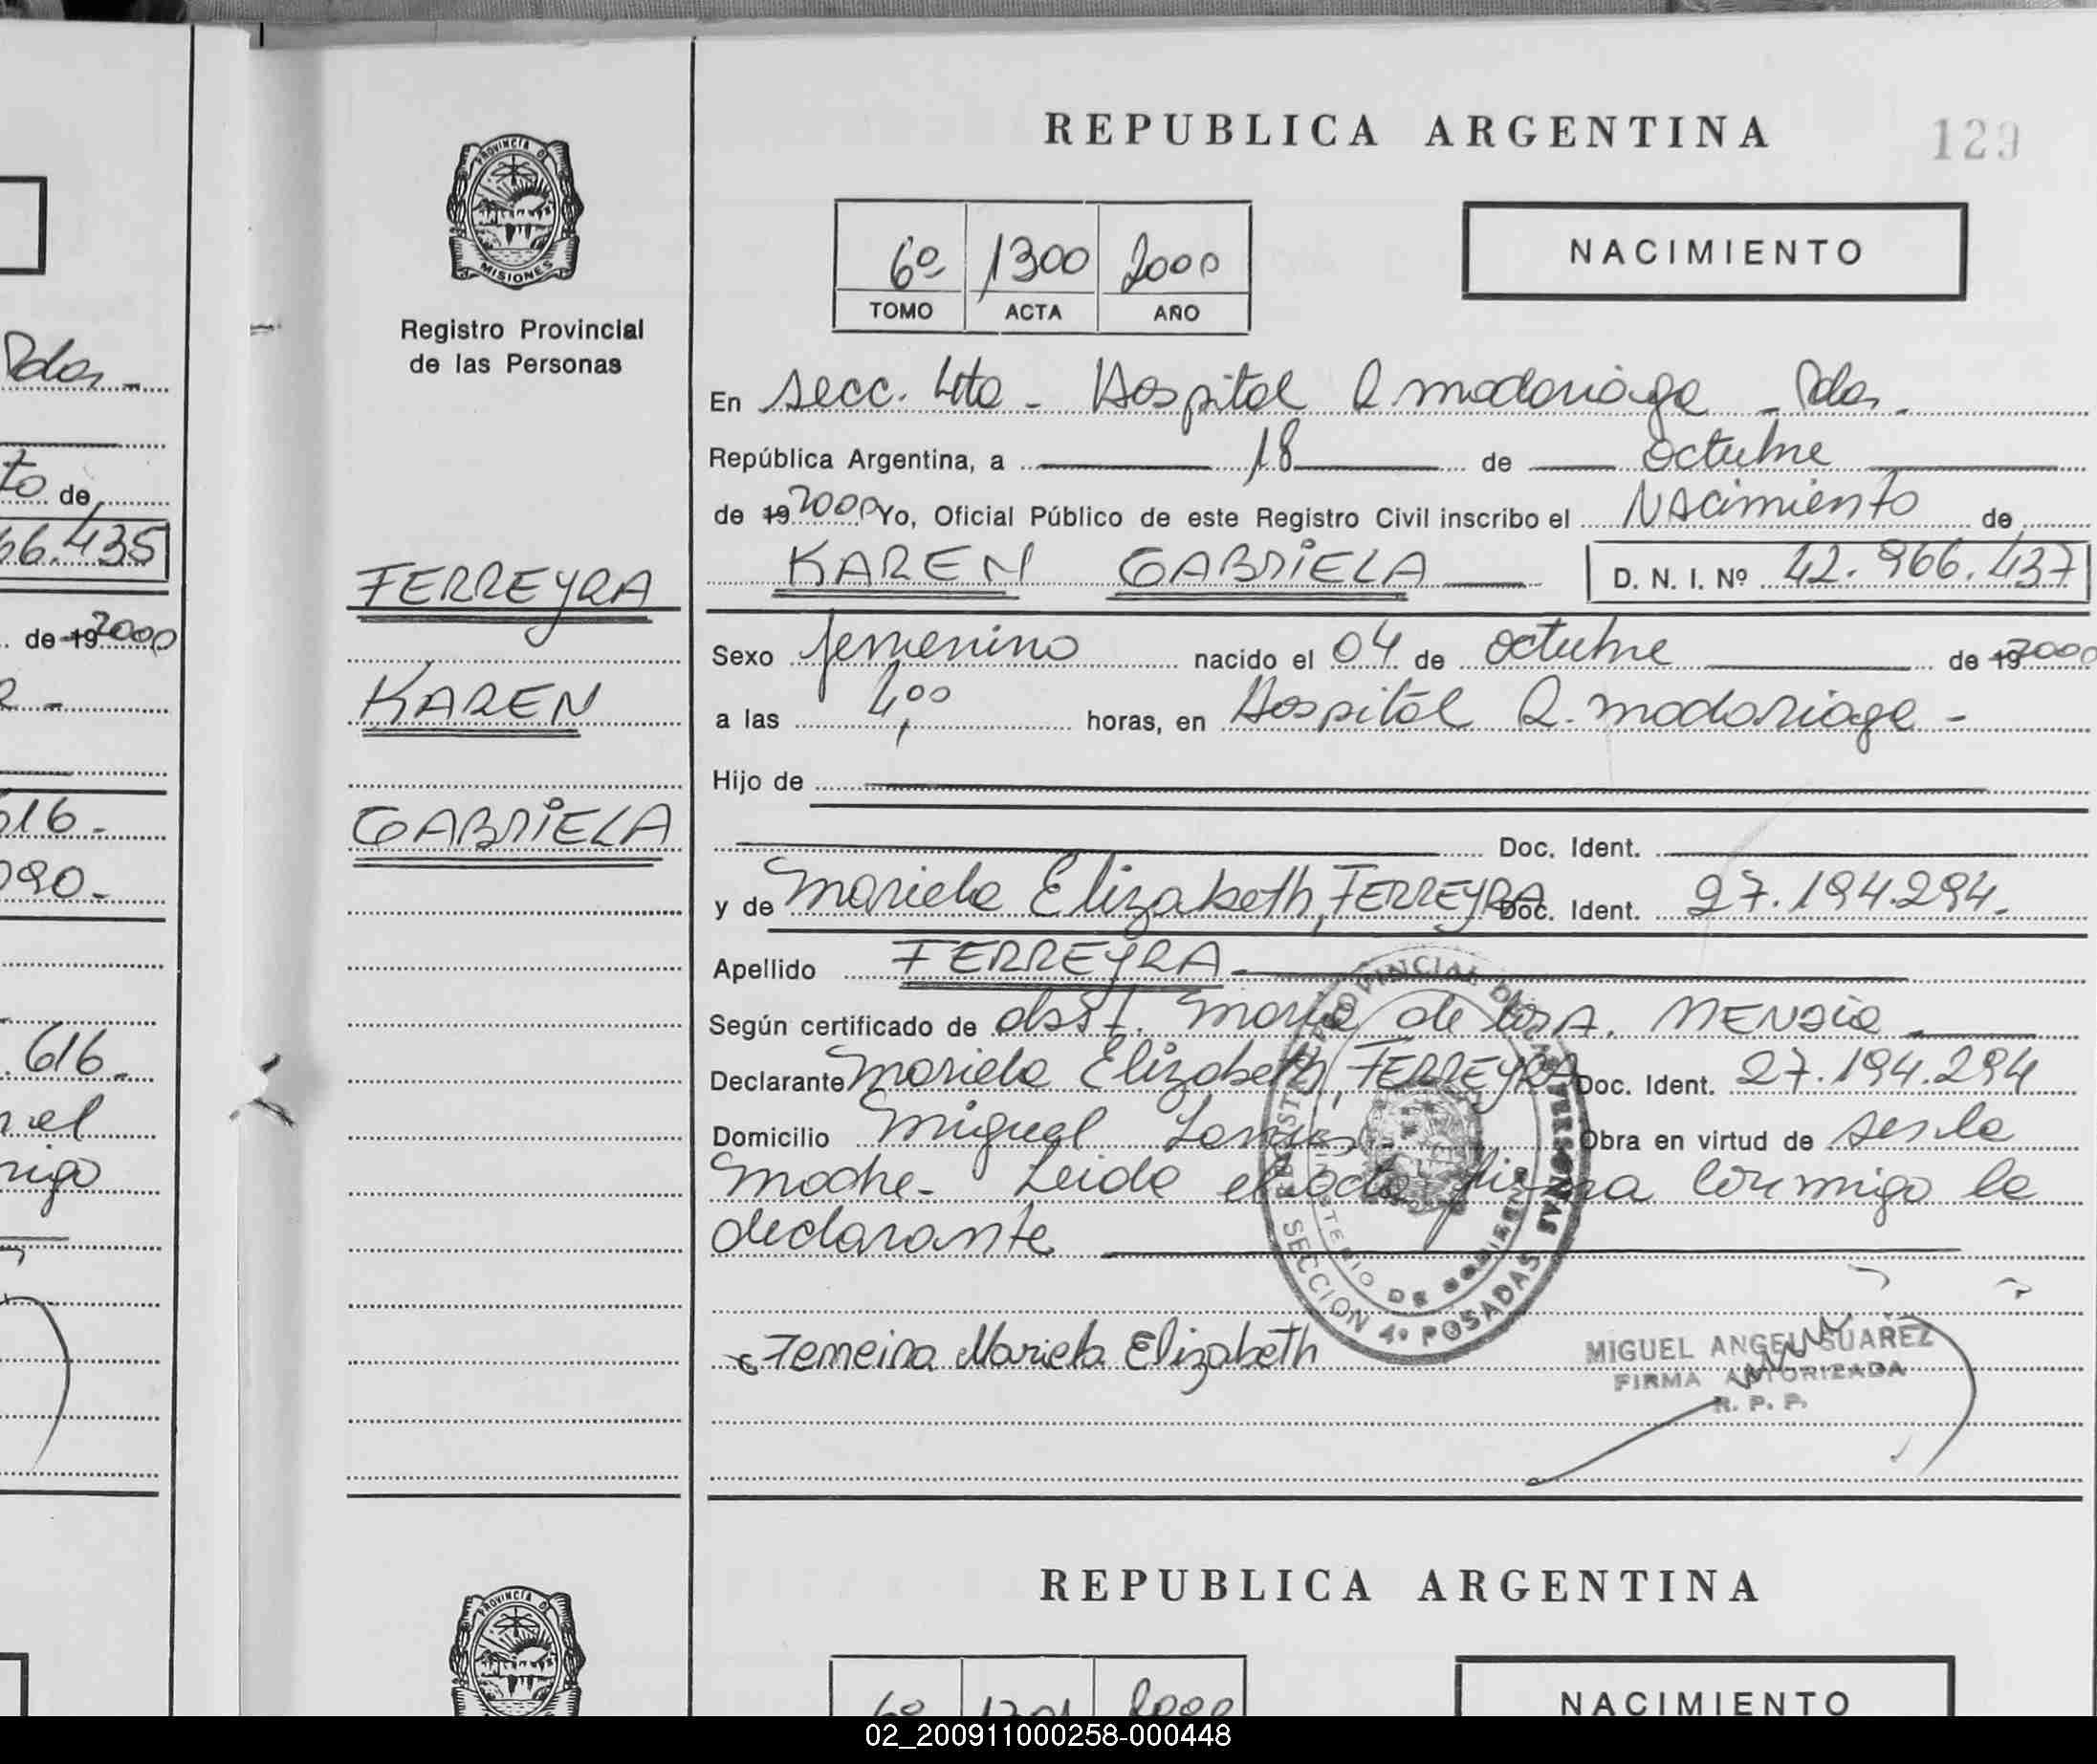 REPUBLICA ARGENTINA
129
PROVINCIA D
MISIONES
Registro Provincial
de las Personas
6º 1300 2000
TOMO ACTA AÑO
NACIMIENTO
Pdas -
En Secc. 4ta - Hospital R madariaga - Pdas.
República Argentina, a 18 de octubre
to de
de 19 2000 Yo, Oficial Público de este Registro Civil inscribo el Nacimiento de
66.435
KAREN GABRIELA D. N. I. Nº 42.966.437
FERREYRA
de 19 2000
Sexo femenino nacido el 04 de octubre de 19 2000
KAREN
a las 4,00 horas, en Hospital R. madariaga -
Hijo de
616.
GABRIELA
Doc. Ident.
090.
y de Mariela Elizabeth, FERREYRA Doc. Ident. 27.194.294.
Apellido FERREYRA.
Según certificado de obst. María de los A. MENDIO
616.
Declarante Mariela Elizabeth, FERREYRA Doc. Ident. 27.194.294
Domicilio Miguel Lanus - Obra en virtud de ser la
migo
madre. Leida el acta firma conmigo la
declarante
REGISTRO PROVINCIAL DE LAS PERSONAS
MINISTERIO DE GOBIERNO
SECCION 4º POSADAS
Ferreira Mariela Elizabeth
MIGUEL ANGEL SUAREZ
FIRMA AUTORIZADA
R. P. P.
REPUBLICA ARGENTINA
PROVINCIA D
6º 1301 2000
NACIMIENTO
02_200911000258-000448